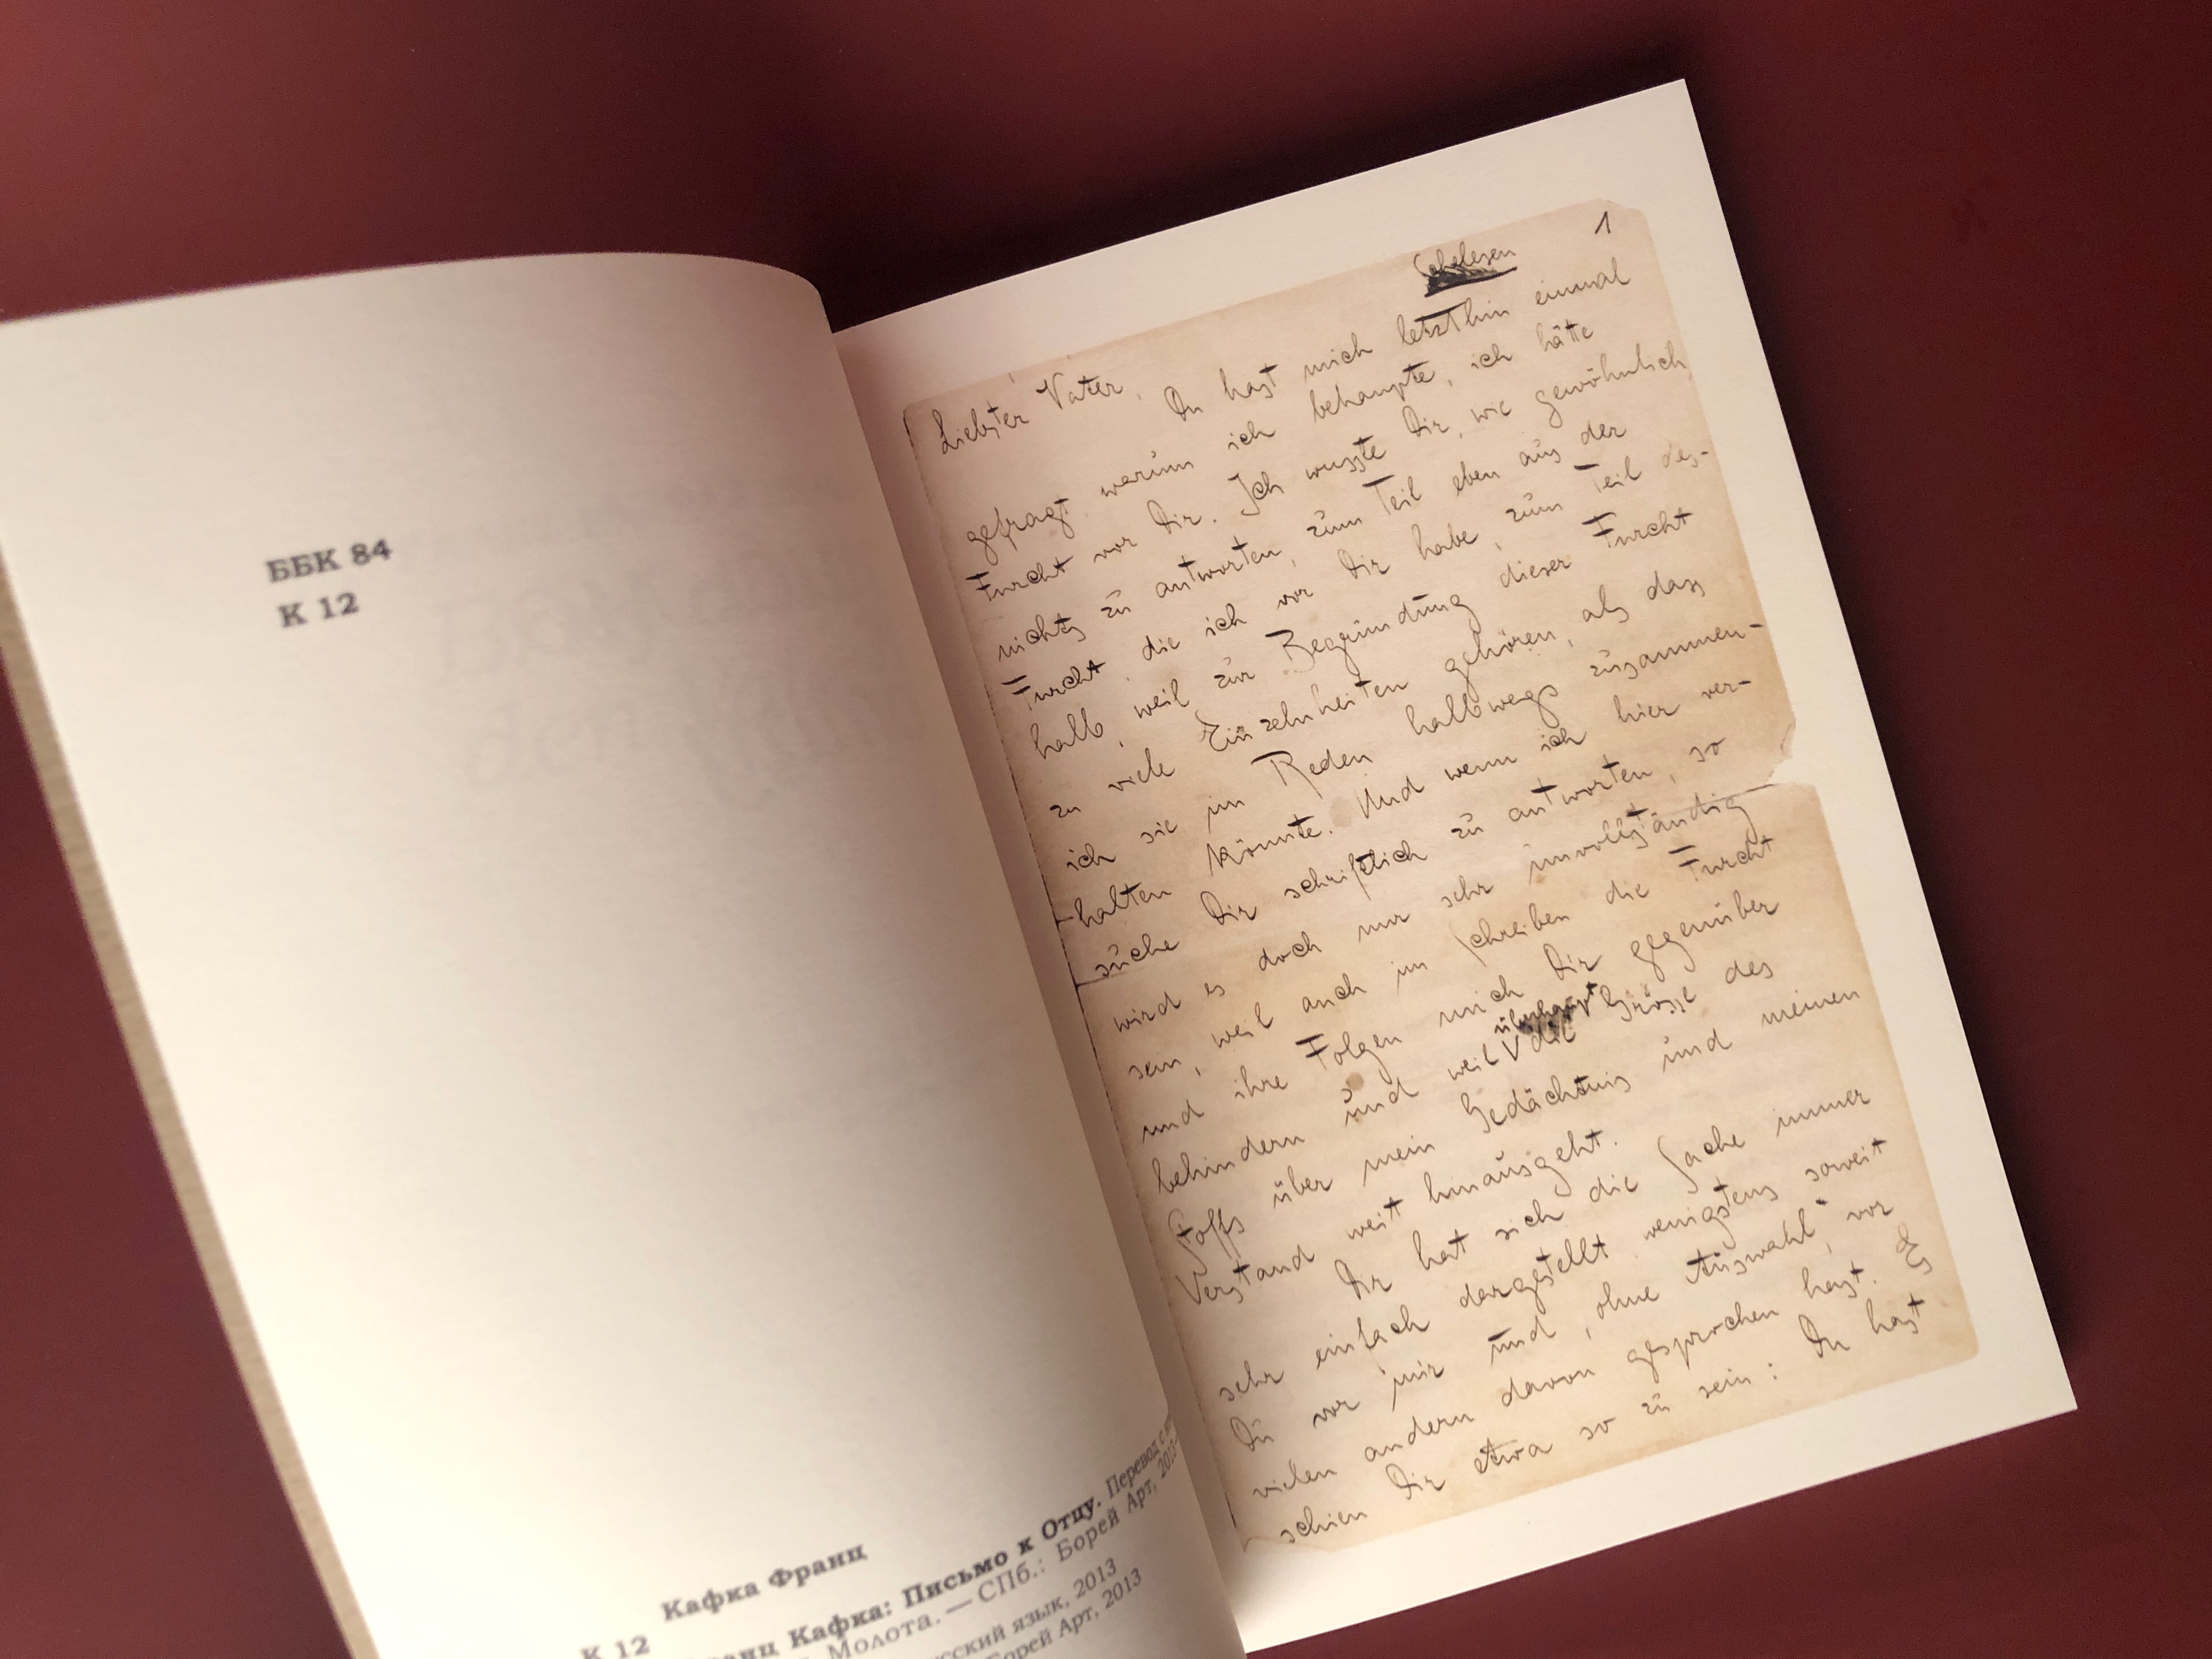 ББК 84
К 12
Кафка Франц
К 12
Кафка: Письмо к Отцу. Перевод с
Молота. — СПб.: Борей Арт, 2013
язык, 2013
Борей Арт, 2013
1
Schelesen
Liebster Vater,
Du hast mich letzthin einmal
gefragt, warum ich behaupte, ich hätte
Furcht vor Dir. Ich wusste Dir, wie gewöhnlich,
nichts zu antworten, zum Teil eben aus der
Furcht, die ich vor Dir habe, zum Teil des-
halb, weil zur Begründung dieser Furcht
zu viele Einzelnheiten gehören, als dass
ich sie im Reden halbwegs zusammen-
halten könnte. Und wenn ich hier ver-
suche Dir schriftlich zu antworten, so
wird es doch nur sehr unvollständig
sein, weil auch im Schreiben die Furcht
und ihre Folgen mich Dir gegenüber
behindern und weil überhaupt die Grösse des
Stoffs über mein Gedächtnis und meinen
Verstand weit hinausgeht.
Dir hat sich die Sache immer
sehr einfach dargestellt, wenigstens soweit
Du vor mir und, ohne Auswahl, vor
vielen andern davon gesprochen hast. Es
schien Dir etwa so zu sein: Du hast